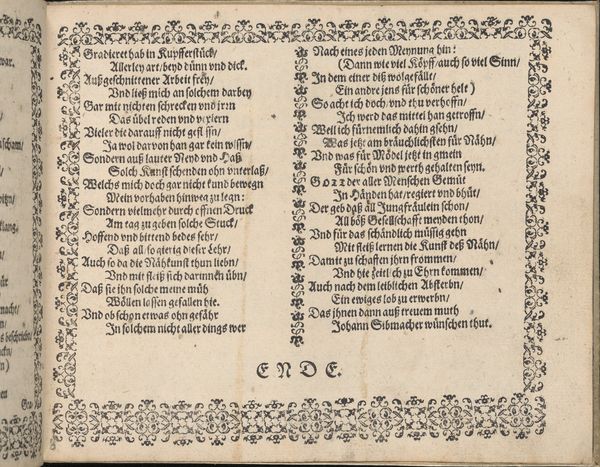 war.
Gradieret hab in Kupfferstück/
Allerley art/beyd dünn vnd dick.
Außgeschnittener Arbeit frey/
Vnd ließ mich an solchem darbey
Gar mit nichten schrecken vnd jrrn
Das übel reden vnd vexiern
Vieler die darauff nicht geflissn/
Ja wol darvon han gar kein wissn/
Sondern auß lauter Neyd vnd Haß
Solch Kunst schenden ohn vnterlaß/
Welchs mich doch gar nicht kund bewegn
Mein vorhaben hinweg zu legn:
Sondern vielmehr durch offnen Druck
Am tag zu geben solche Stuck/
Hoffend vnd bittend bedes sehr/
Daß all so gierig dieser Lehr/
Auch so da die Nähkunst thun liebn/
Vnd mit fleiß sich darinnen übn/
Daß sie ihn solche meine müh
Wöllen lassen gefallen hie.
Vnd ob schon etwas ohn gefähr
In solchem nicht aller dings wer
Nach eines jeden Meynung hin:
(Dann wie viel Köpff/auch so viel Sinn/
In dem einer diß wolgefällt/
Ein andre jens für schöner helt)
So acht ich doch/vnd thu verhoffn/
Ich werd das mittel han getroffn/
Weil ich fürnemlich dahin gsehn/
Was jetzt am bräuchlichsten für Nähn/
Vnd was für Mödel jetzt in gmein
Für schön vnd werth gehalten seyn.
GOtt der aller Menschen Gemüt
In Händen hat/regiert vnd bhüt/
Der geb daß all Jungfräulein schon/
All böß Gesellschafft meyden thon/
Vnd für das schändlich müssig gehn
Mit fleiß lernen die Kunst deß Nähn/
Damit zu schaffen jhrn frommen/
Vnd hie zeitlich zu Ehrn kommen/
Auch nach dem leiblichen Absterbn/
Ein ewiges lob zu erwerbn/
Das ihnen dann auß treuem muth
Johann Sibmacher wünschen thut.
ENDE.